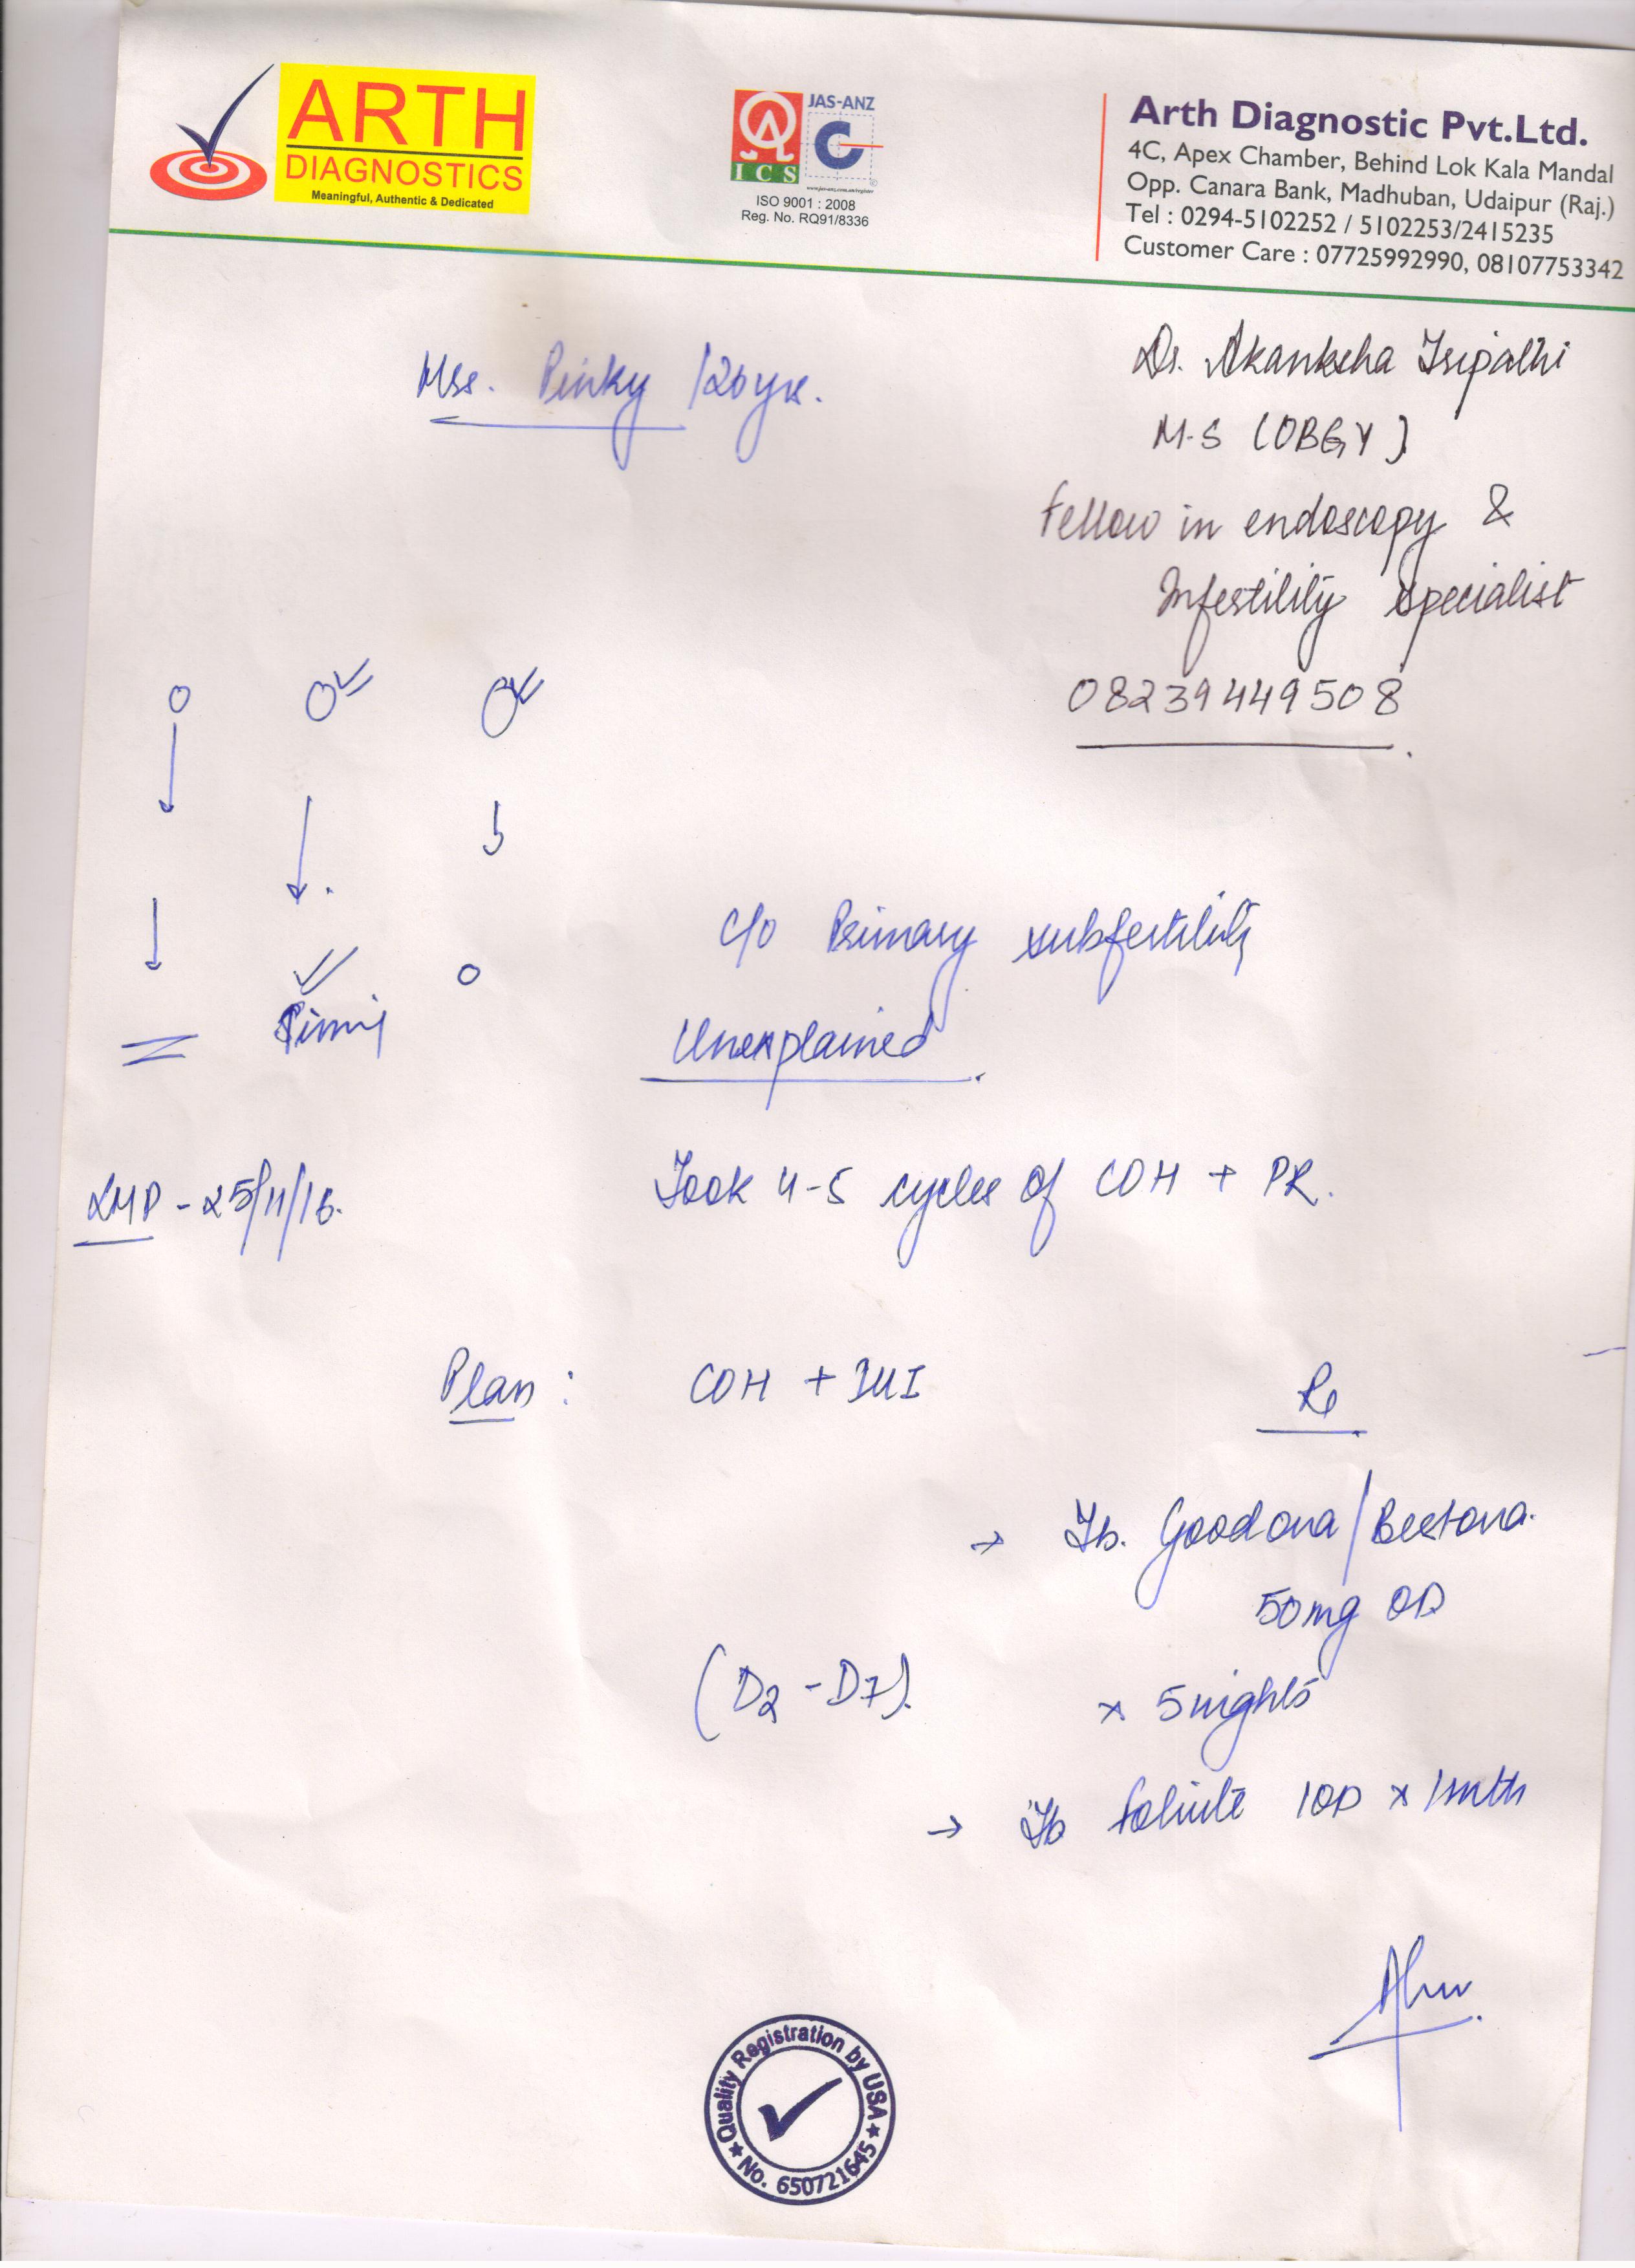 ARTH
DIAGNOSTICS
Meaningful, Authentic & Dedicated
JAS-ANZ
ICS
ISO 9001 : 2008
Reg. No. RQ91/8336
Arth Diagnostic Pvt.Ltd.
4C, Apex Chamber, Behind Lok Kala Mandal
Opp. Canara Bank, Madhuban, Udaipur (Raj.)
Tel : 0294-5102252 / 5102253/2415235
Customer Care : 07725992990, 08107753342
Dr. Akanksha Tripathi
M.S (OBGY)
Fellow in endoscopy &
Infertility specialist
08239449508
Mrs. Pinky /26yrs.
c/o Primary subfertility
Unexplained
LMP - 25/11/16.
Took 4-5 cycles of COH + PR.
Plan : COH + IUI
Rx
→ Tb. Goodova/
50mg OD
(D2 - D7) x 5 nights
→ Tb 1OD x 1mth
Quality Registration by USA
No. 650721645